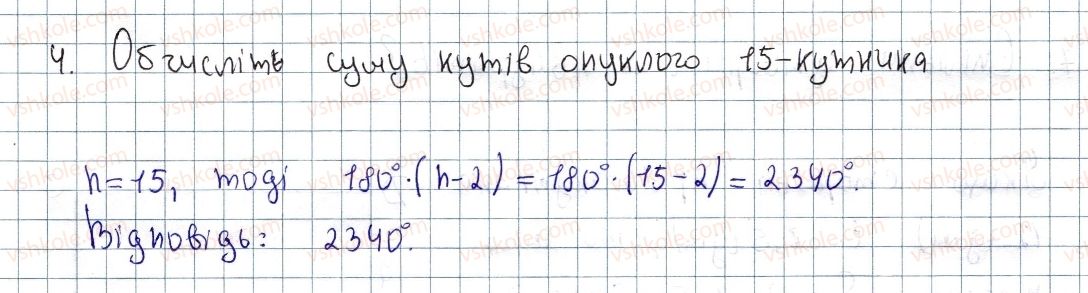 4. Обчисліть суму кутів опуклого 15-кутника
n=15, тоді 180°·(n-2) = 180°·(15-2) = 2340°.
Відповідь: 2340°.